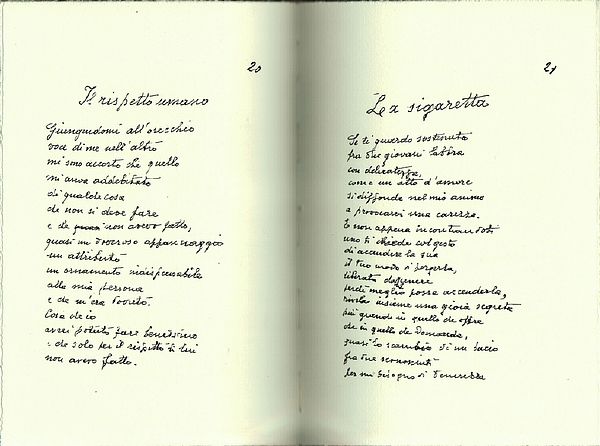 20
Il rispetto umano
Giungendomi all'orecchio
voci di me nell'altro
mi sono accorto che quello
mi aveva addebitato
di qualche cosa
che non si deve fare
e che non avevo fatto,
quasi un doveroso appannaggio
un attributo
un ornamento indispensabile
alla mia persona
e che m'era dovuto.
Cosa che io
avrei potuto fare benissimo
e che solo per il rispetto di lui
non avevo fatto.
21
La sigaretta
Se ti guardo sostenuta
fra due giovani labbra
con delicatezza,
come un atto d'amore
si diffonde nel mio animo
a provocarci una carezza.
E non appena incontrandoti
uno ti chiede col gesto
di accendere la sua
il tuo modo di porgerla,
liberata dappenere
perché meglio possa accenderla,
rivela insieme una gioia segreta
più grande in quello che offre
che in quello che domanda,
quasi lo scambio di un bacio
fra due sconosciuti
per un bisogno di tenerezza